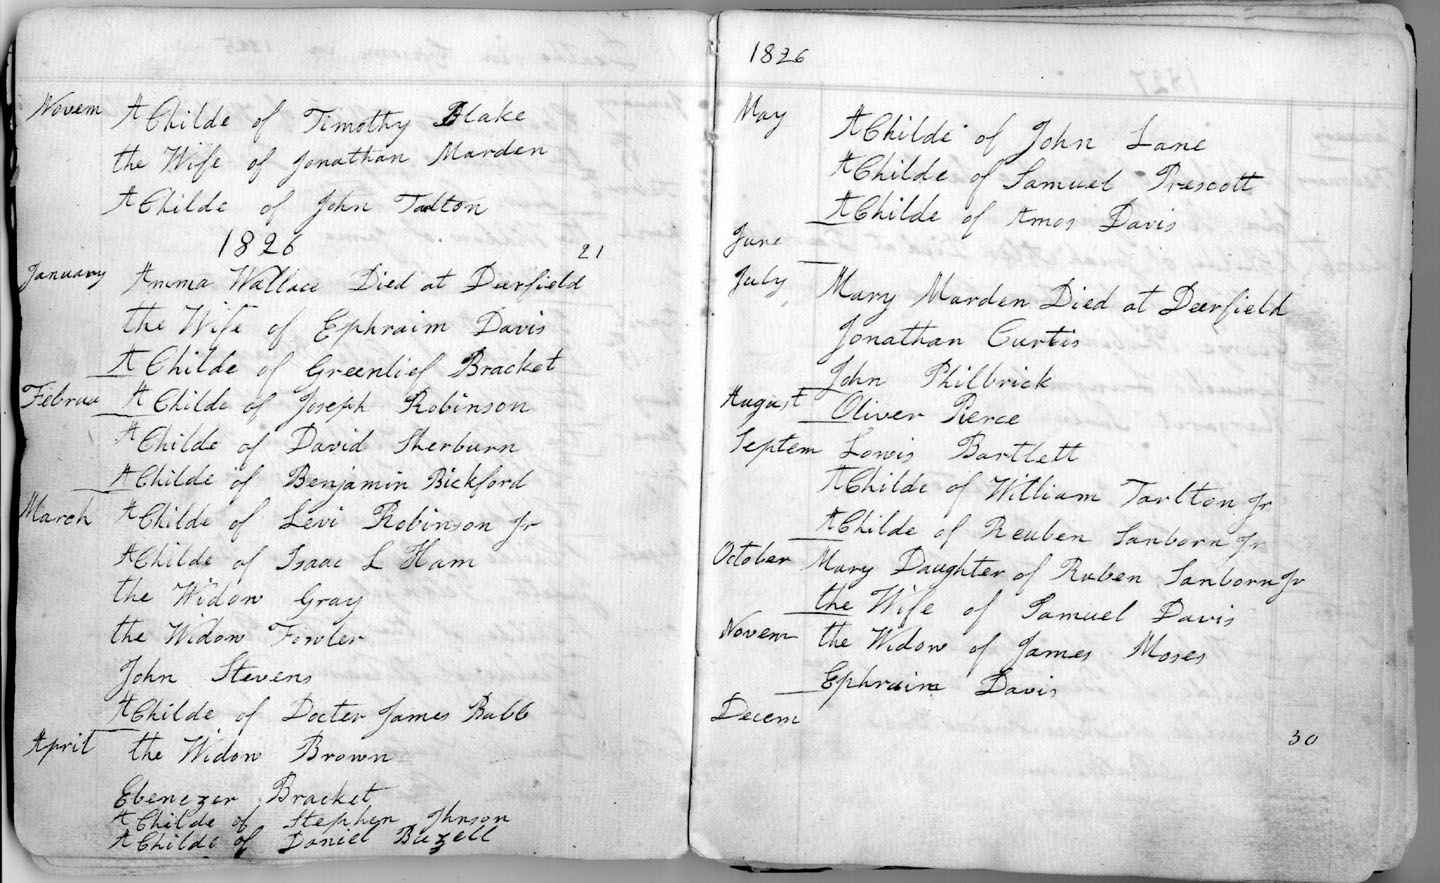 Novem A Childe of Timothy Blake
the Wife of Jonathan Marden
A Childe of John Talton
1826 21
January Amma Wallace Died at Deerfield
the Wife of Ephraim Davis
A Childe of Greenlief Bracket
Februa A Childe of Joseph Robinson
A Childe of David Sherburn
A Childe of Benjamin Bickford
March A Childe of Levi Robinson Jr
A Childe of Isaac L Ham
the Widow Gray
the Widow Fowler
John Stevens
A Childe of Docter James Babb
April the Widow Brown
Ebenezer Bracket
A Childe of Stephen Jhnson
A Childe of Daniel Buzell
1826
May A Childe of John Lane
A Childe of Samuel Prescott
A Childe of Amos Davis
June
July Mary Marden Died at Deerfield
Jonathan Curtis
John Philbrick
August Oliver Pierce
Septem Lowis Bartlett
A Childe of William Tarlton Jr
A Childe of Reuben Sanborn Jr
October Mary Daughter of Ruben Sanborn Jr
the Wife of Samuel Davis
Novem the Widow of James Moses
Ephraim Davis
Decem
30